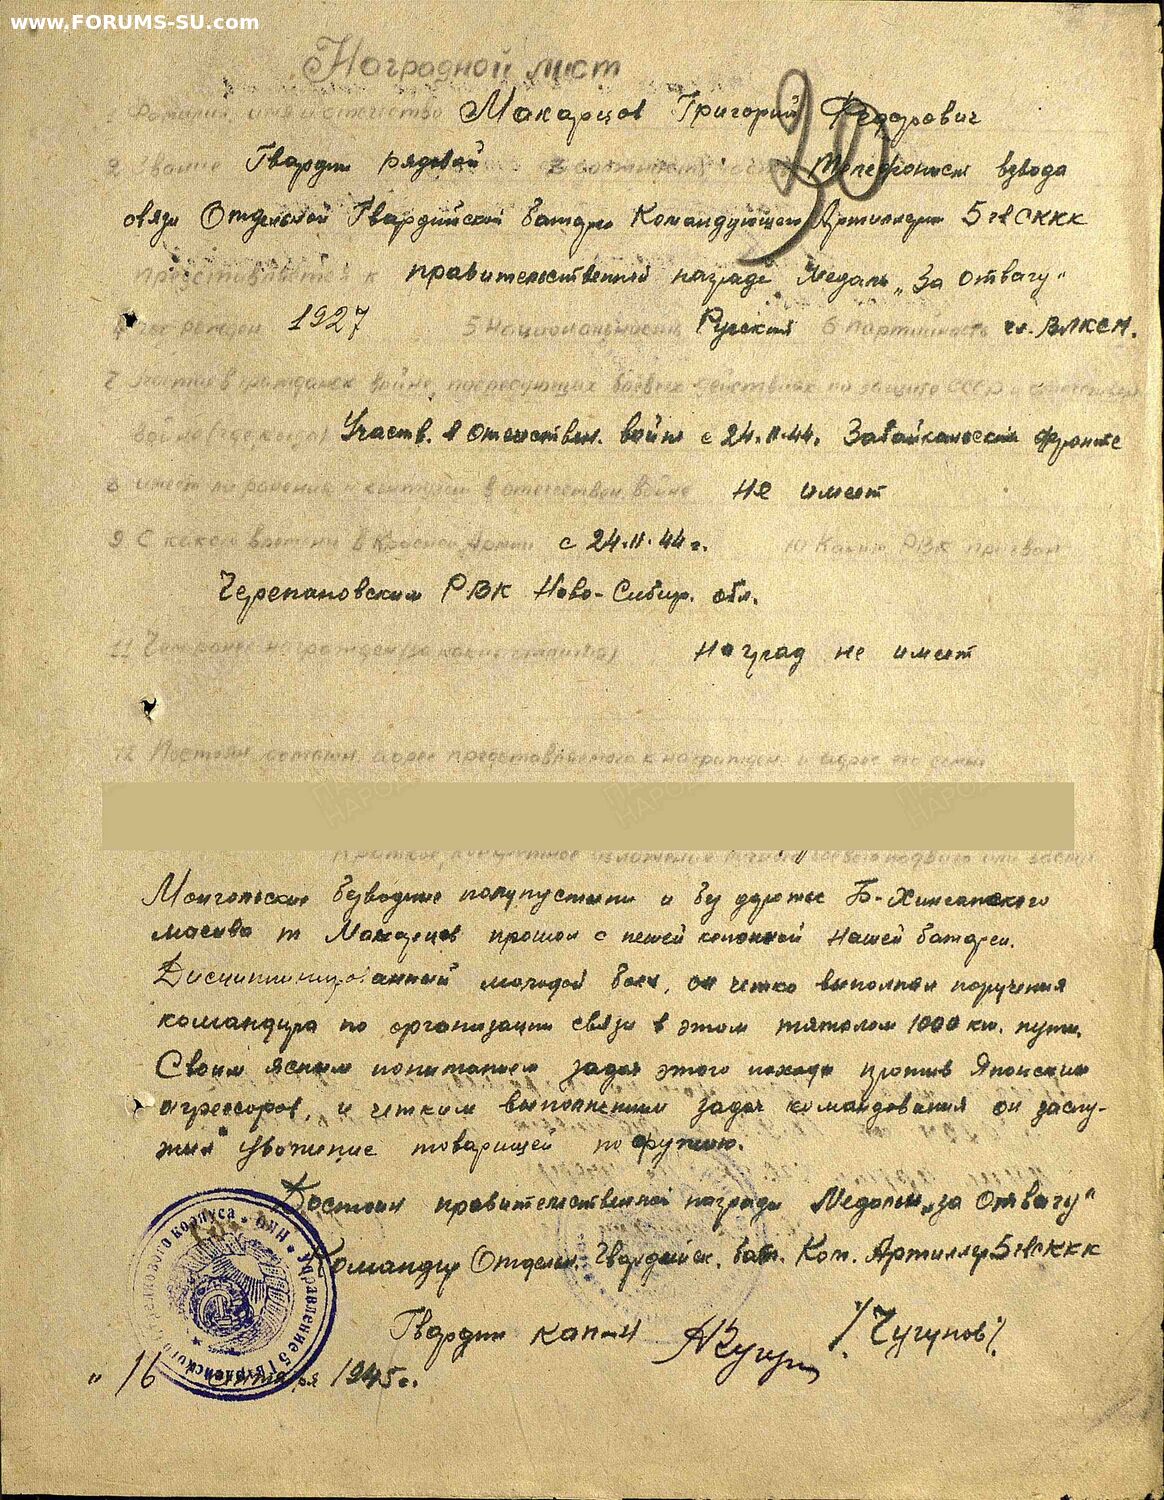 www.FORUMS-SU.com
Наградной лист
Фамилия, имя и отчество Макарцов Григорий Федорович
30
2 Звание Гвардии рядовой 3 Телефонист взвода
связи Отдельной Гвардейской батареи Командующего Артиллерии 5 гв СККК
представляется к правительственной награде Медаль „За отвагу"
4 Год рожден 1927 5 Национальность Русский 6 партийность чл. ВЛКСМ.
7 Участие в гражданск войне, последующих боевых действиях по защите СССР и отечествен
войне (где когда) Участв. в отечествен. войне с 24.11.44. Забайкальский фронте
8 имеет ли ранения и контузии в отечествен. войне не имеет
9 С какого времени в Красной Армии с 24.11.44 г. 10 Каким РВК призван
Черепановским РВК Ново-Сибир. обл.
11 Чем ранее награжден (за какие отличия) наград не имеет
12 Постоян. домашн. адрес представляемого к награжден. и адрес его семьи
Краткое, конкретное изложение личного боевого подвига или заслуг
Монгольские безводные полупустыни и без дорожье Б-Хинганского
масива т Макарцов прошол с пешей колонной нашей батареи.
Дисциплинированный молодой боец, он четко выполнял поручения
командира по организации связи в этом тяжолом 1000 км. пути.
Своим ясным пониманием задач этого похода против Японских
агрессоров, и четким выполнением задач командования он заслу-
жил уважение товарищей по оружию.
Достоин правительственной награды Медали „за Отвагу"
Командир Отделн. Гвардейск. бат. Ком. Артиллер 5 гв СККК
Гвардии кап-н /Чугунов/.
„ 16 сентября 1945 г.
Управление 5 Гвардейского стрелкового корпуса * НКО *